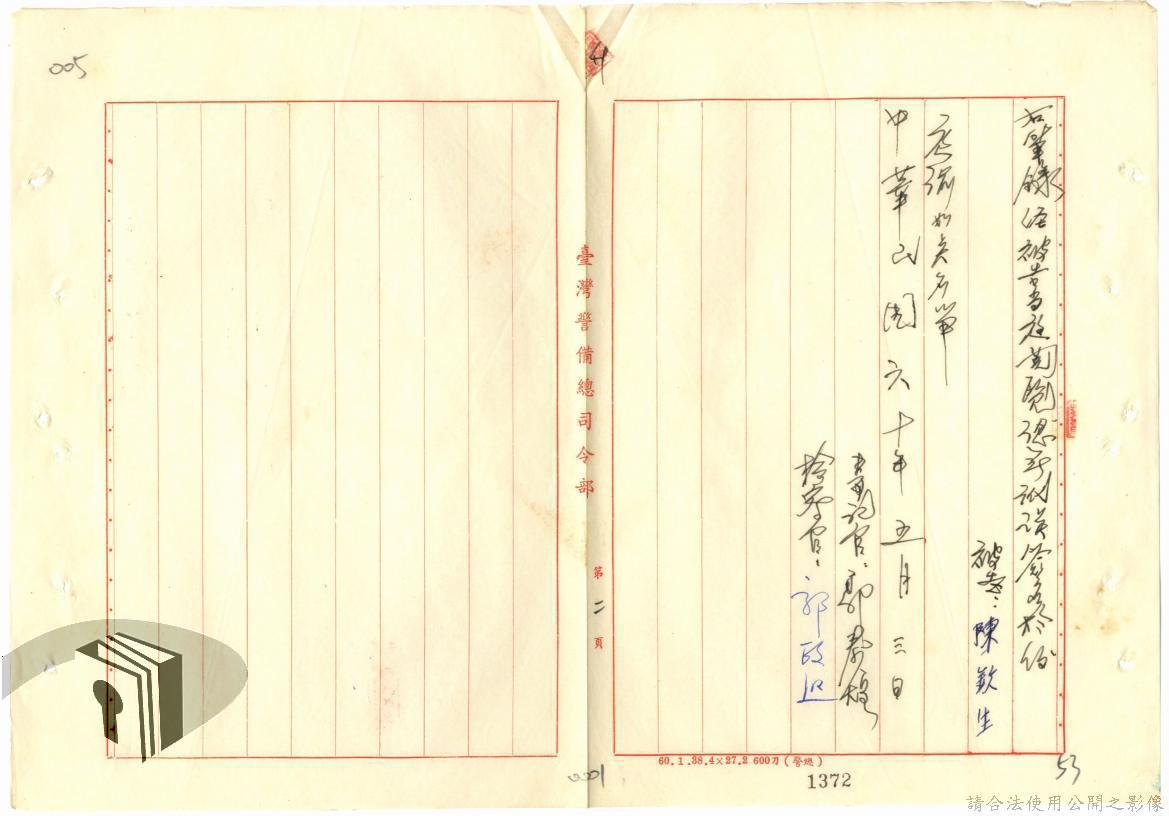 005
4
右筆錄經被告當庭閱覽認無訛誤簽名於后
被告：陳欽生
庭諭如點名單
中華民國六十年五月三日
書記官：
檢察官：郭政熙
臺灣警備總司令部
第二頁
60.1.38.4×27.2 600刀(警總)
1372
53
001
請合法使用公開之影像